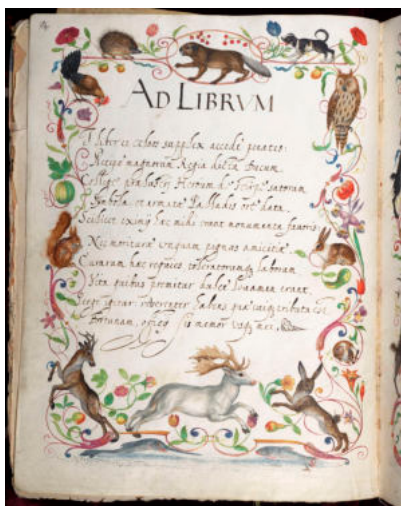 AD LIBRVM
I liber et celsos supplex accede penates:
magnorum Regia dicta Ducum.
Collige Heroum de satorum
Symbola, et armatæ Palladis data.
Scilicet eximij hæc mihi erunt monumenta fauoris:
Nec morituræ unquam pignus amicitiæ.
Curarum hæc requies toleratorumq; laborum
Vita quibus premitur dulce leuamen erunt.
Perge igitur: reuerenter habens quæ cuiq; tributa est
Fortunam, officij sis memor usq; mei.